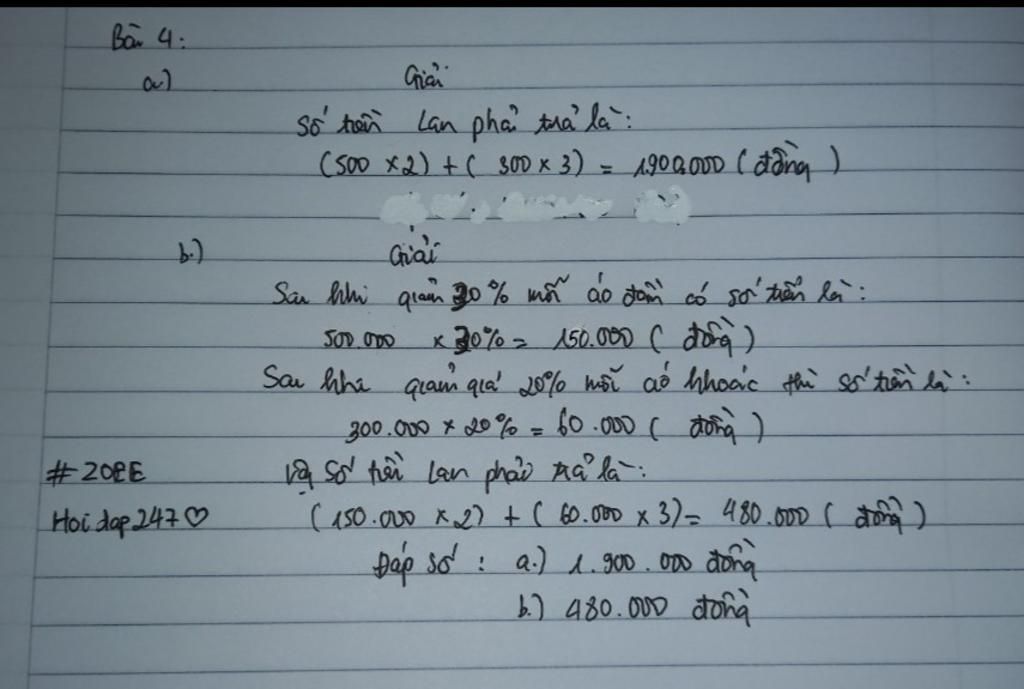 Bài 4:
a.) Giải
Số tiền Lan phải trả là:
(500 x 2) + ( 300 x 3) = 1.900.000 ( đồng )
b.) Giải
Sau khi giảm 30% mỗi áo đầm có số tiền là:
500.000 x 30% = 150.000 ( đồng )
Sau khi giảm giá 20% mỗi áo khoác thì số tiền là:
300.000 x 20% = 60.000 ( đồng )
#ZOEE Vậy số tiền Lan phải trả là:
Hoidap247♡ (150.000 x 2) + ( 60.000 x 3) = 480.000 ( đồng )
Đáp số : a.) 1.900.000 đồng
b.) 480.000 đồng